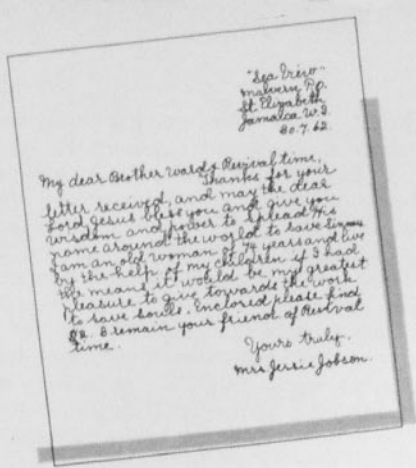 "Sea View"
Malvern P.O.
St. Elizabeth
Jamaica W.I.
30.7.62
My dear Brother Ward & Revival time,
Thanks for your
letter received, and may the dear
Lord Jesus bless you and give you
wisdom and power to spread His
name around the world to save Sinners
I am an old woman of 74 years and live
by the help of my children if I had
the means it would be my greatest
pleasure to give towards the work
to save souls. Enclosed please find
I remain your friend of Revival
time.
Yours truly.
Mrs Jessie Jobson.